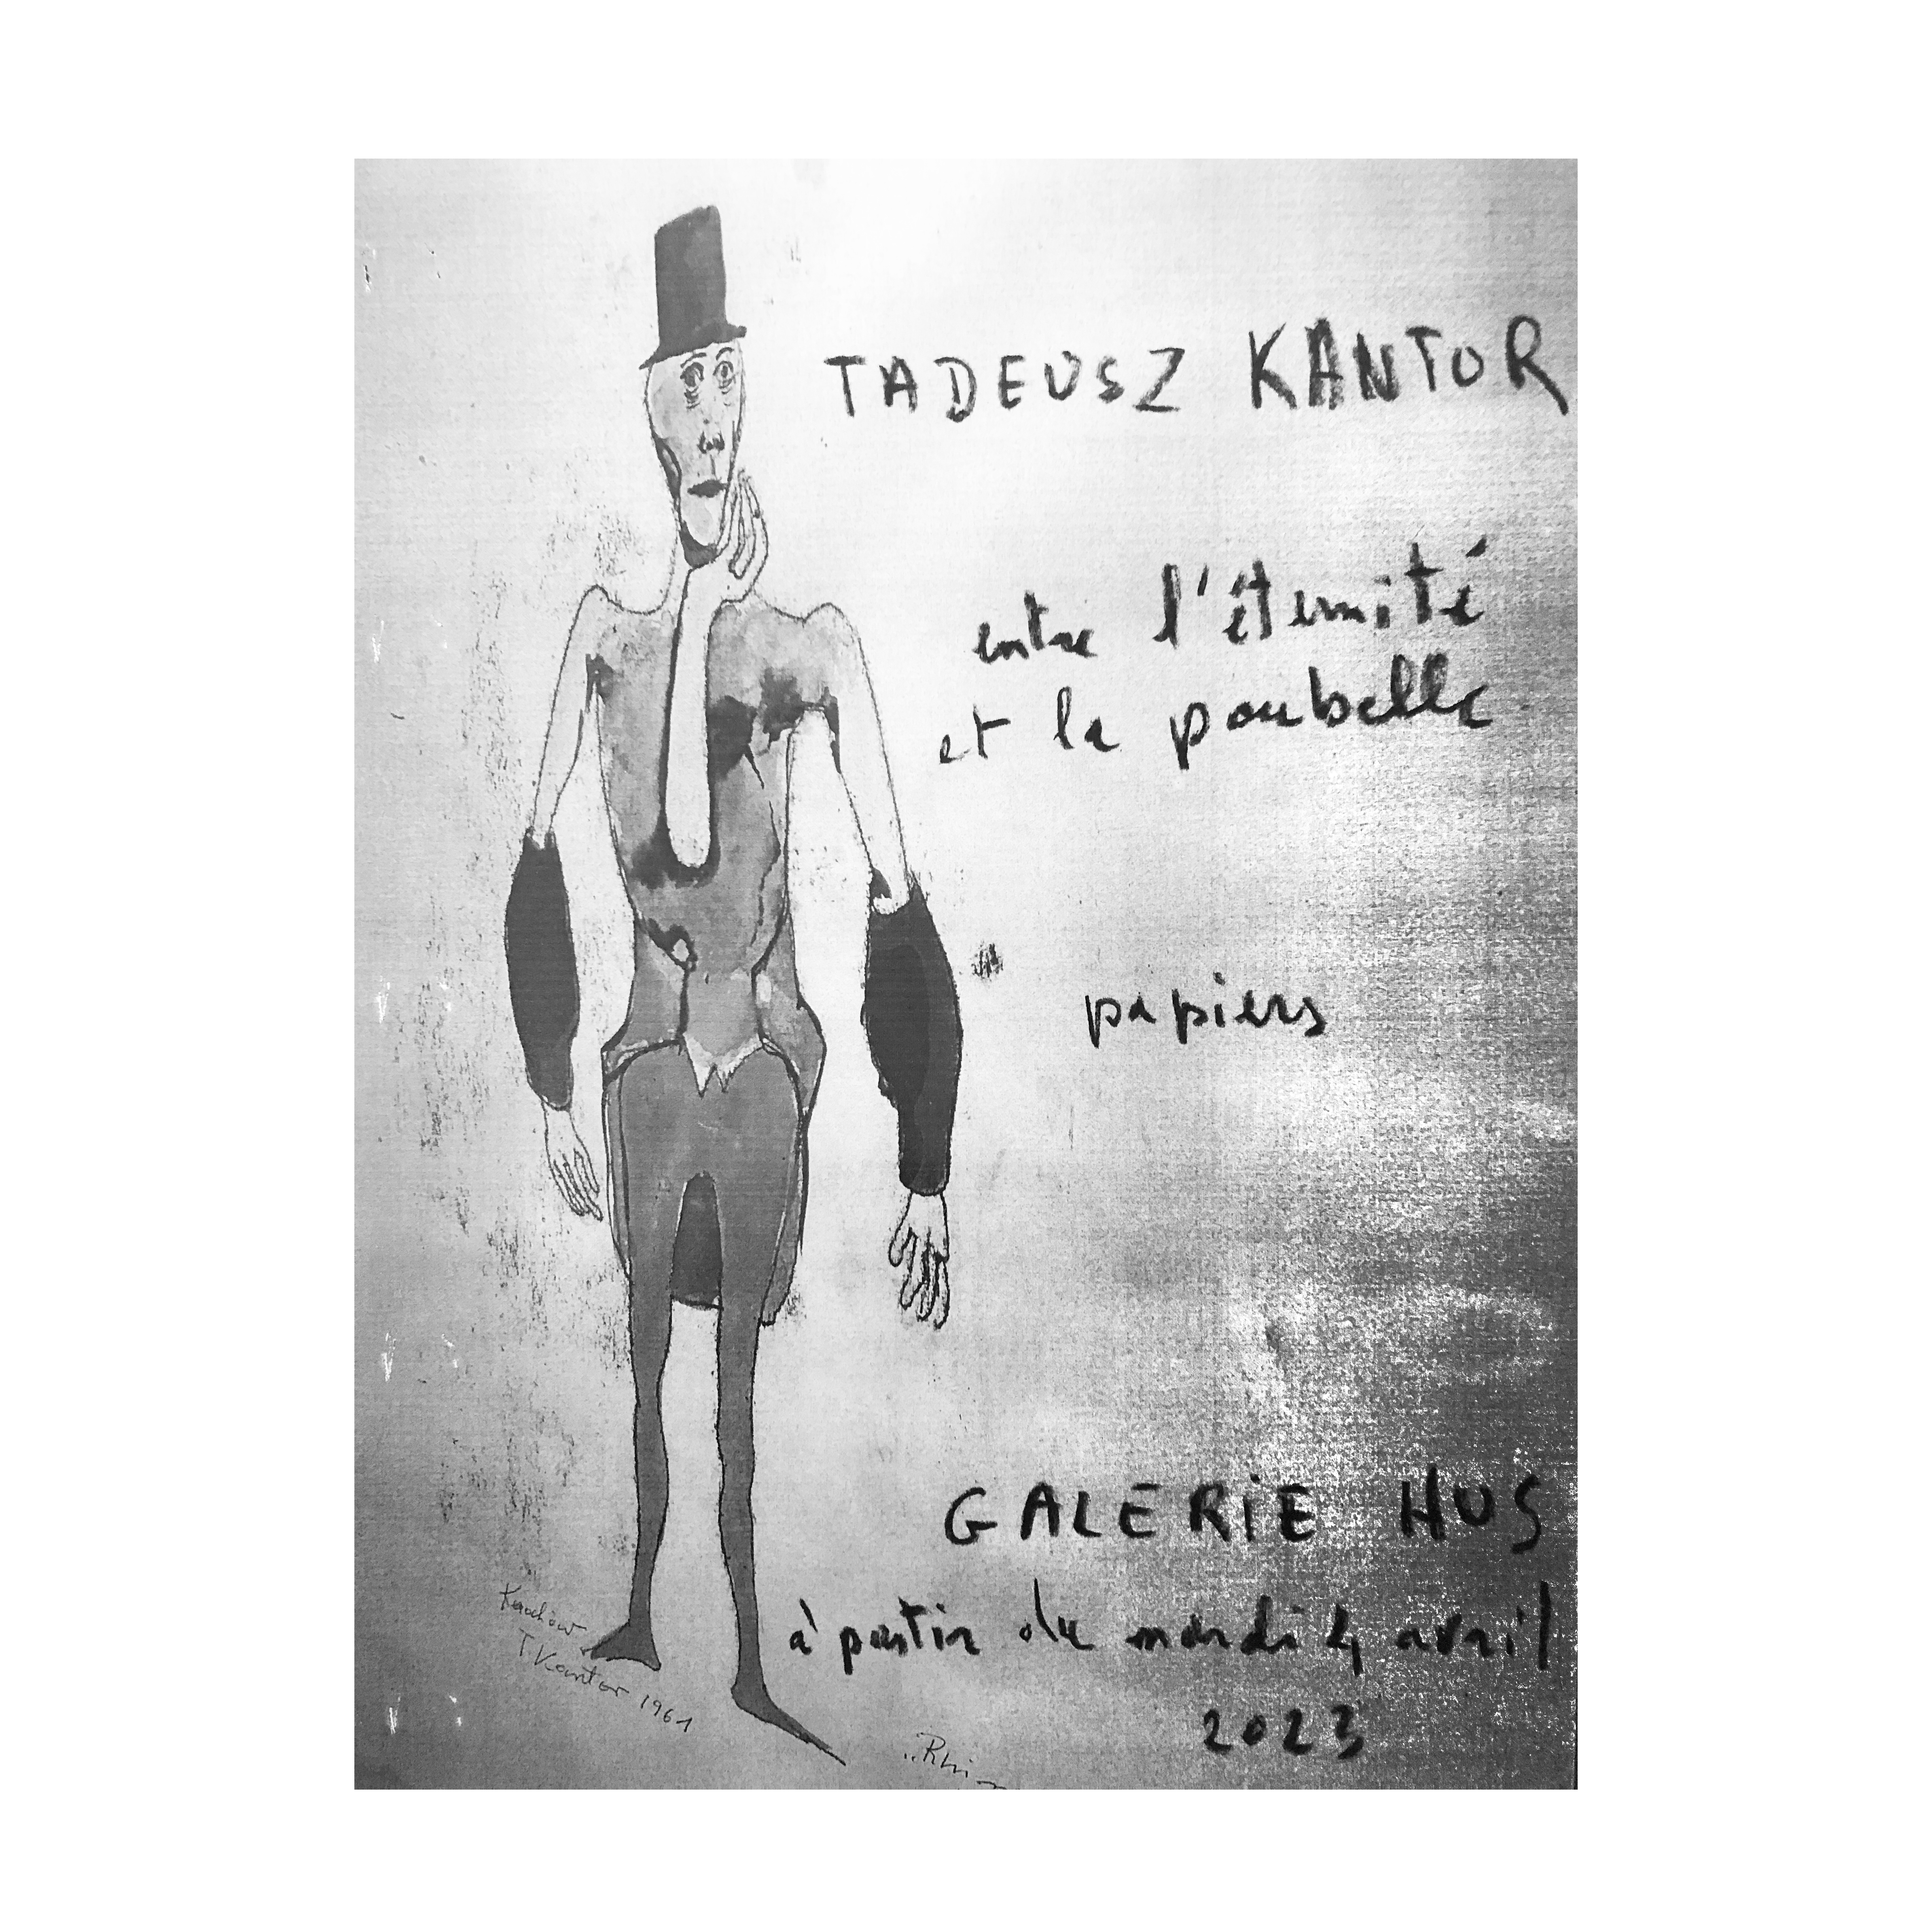 TADEUSZ KANTOR
entre l'éternité
et la poubelle
papiers
GALERIE HUS
à partir du mardi 4 avril
2023
Kraków
T. Kantor 1961